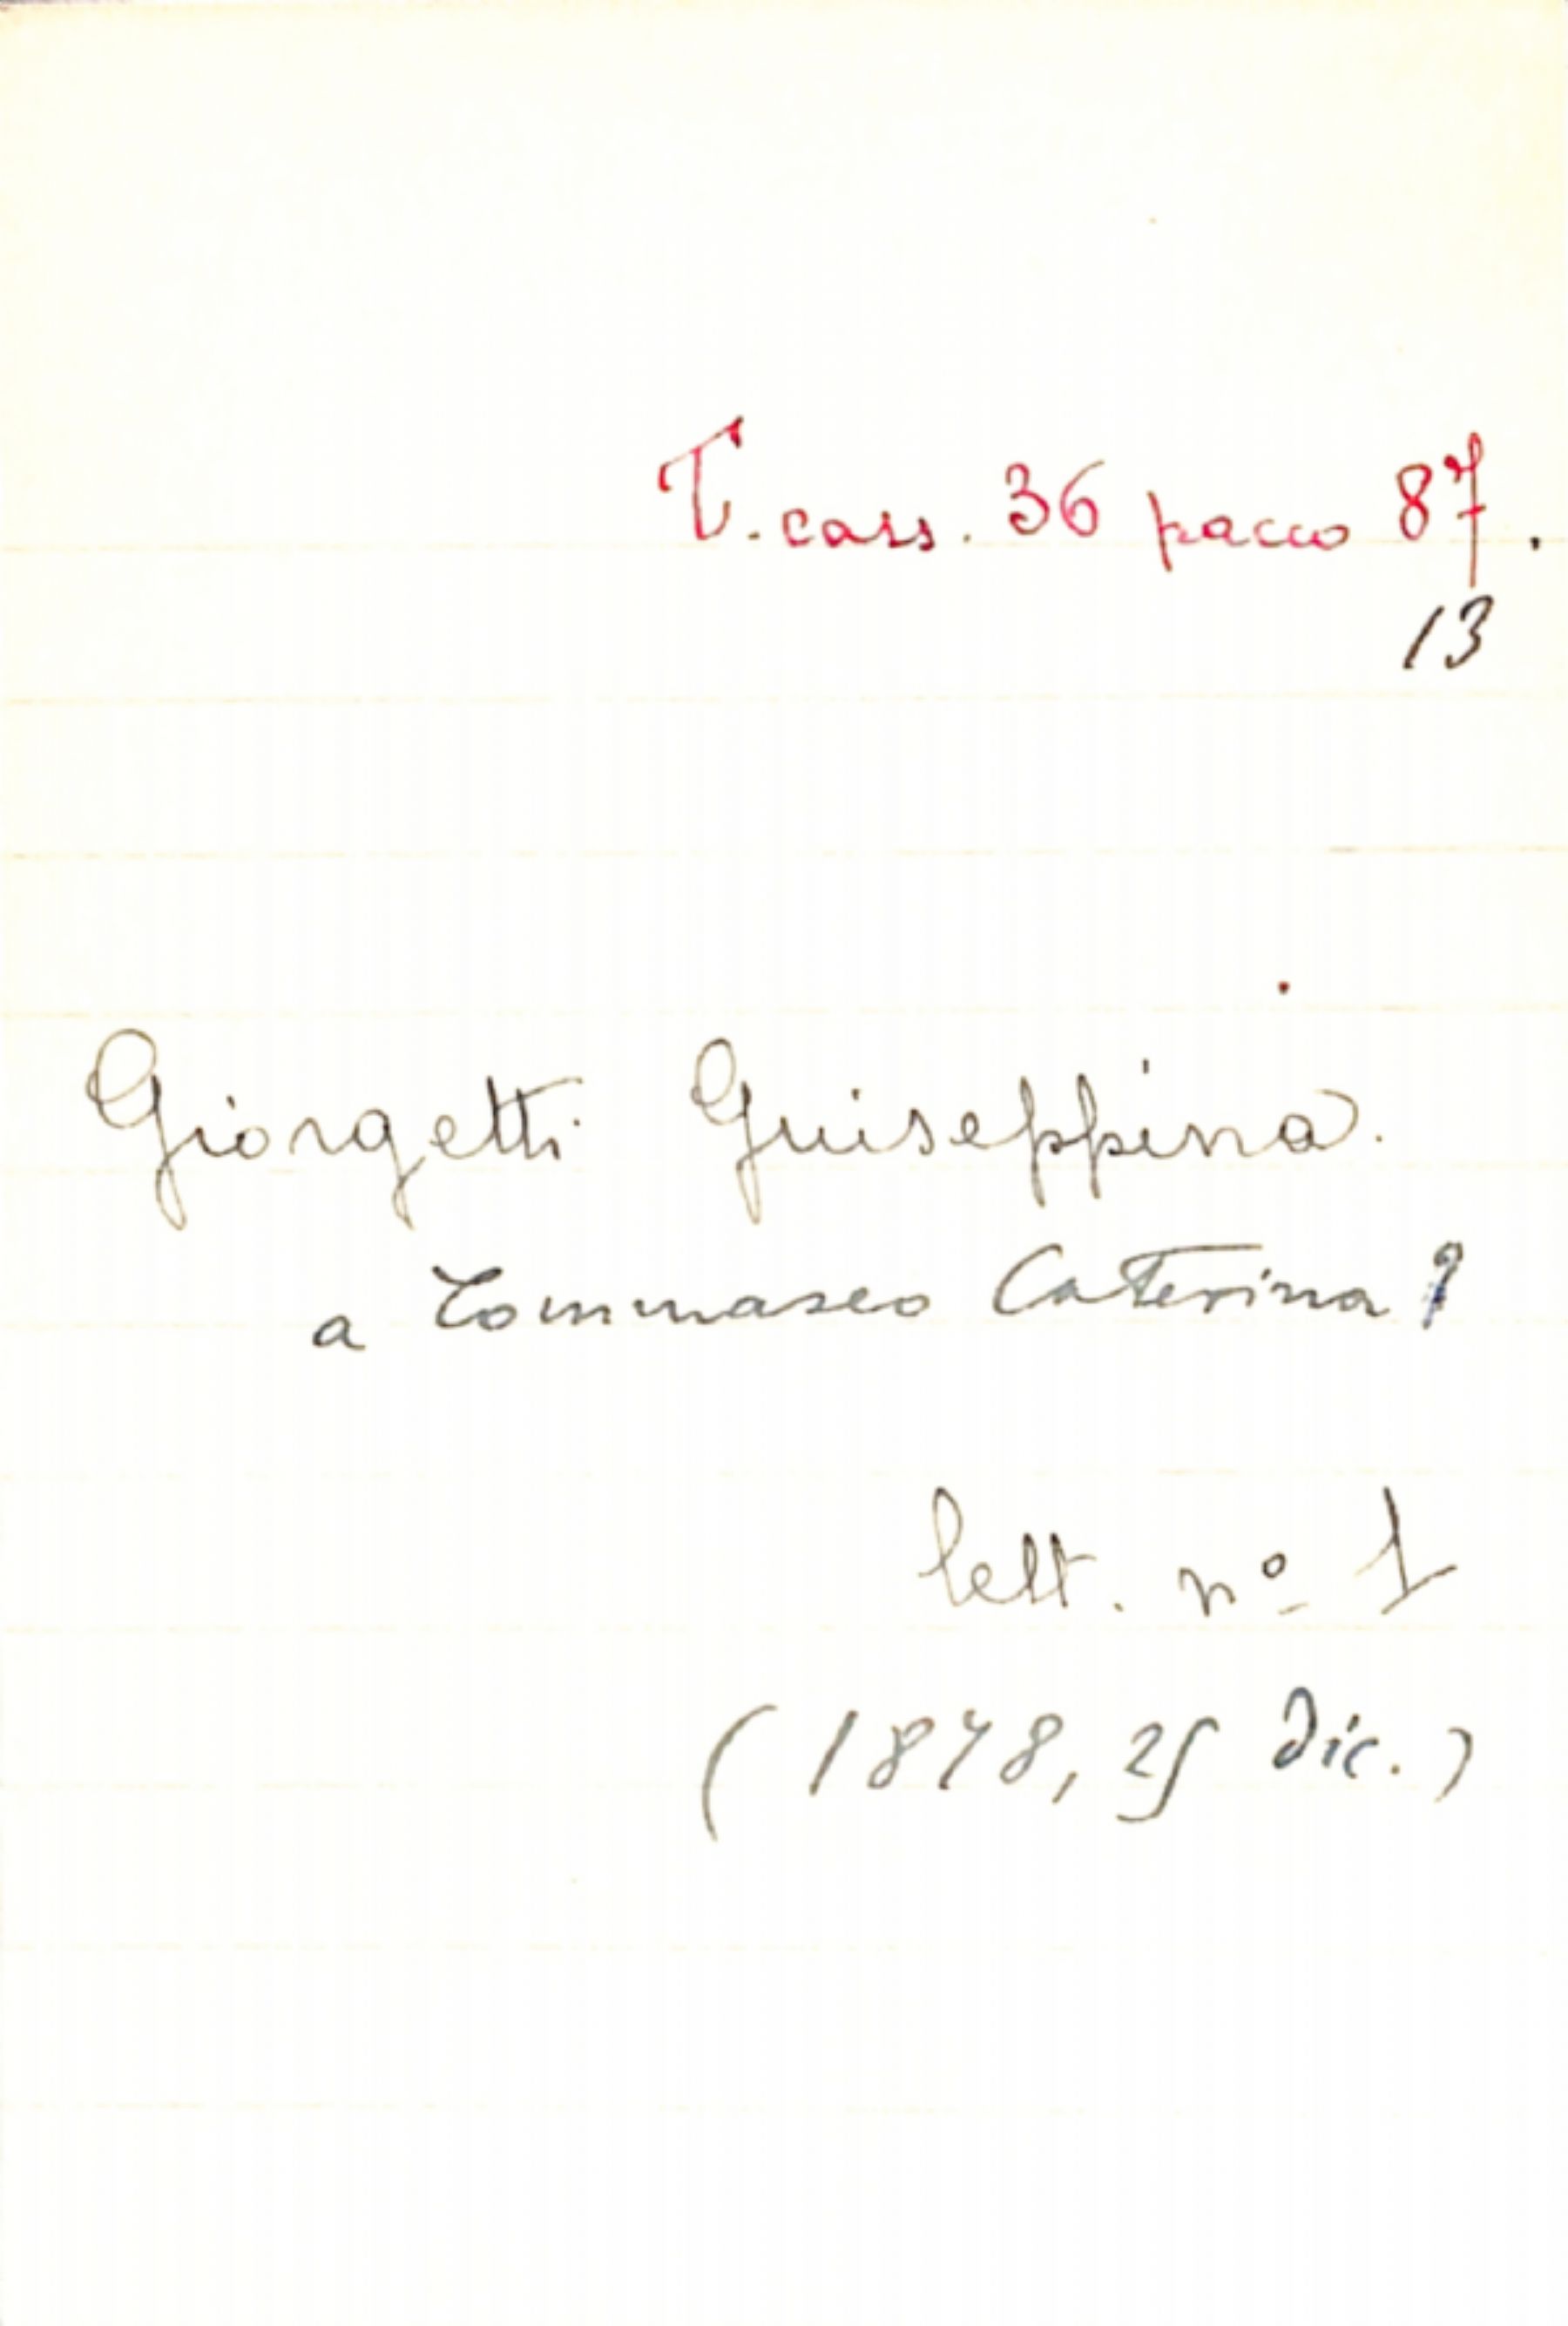 T. cass. 36 pacco 87.
13
Giorgetti Guiseppina.
a Tommaseo Caterina?
lett. nº 1
(1878, 25 dic.)